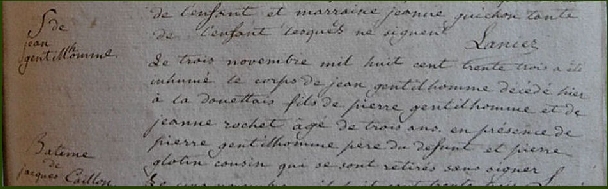 de l'enfant et marraine jeanne guichon tante
de l'enfant lesquels ne signent
Lancer
S de
jean
gentilhomme
Le trois novembre mil huit cent trente trois a été
inhumé le corps de jean gentilhomme décédé hier
à la douettais fils de pierre gentilhomme et de
jeanne rochet âgé de trois ans, en présence de
pierre gentilhomme père du defunt et pierre
glotin cousin qui se sont retirés sans signer
Bateme
de
jacques Caillon